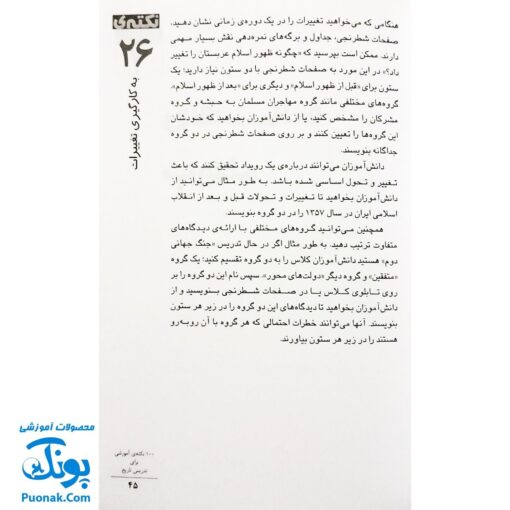 نکته‌ی
۲۶
به کارگیری تغییرات
هنگامی که می‌خواهید تغییرات را در یک دوره‌ی زمانی نشان دهید،
صفحات شطرنجی، جداول و برگه‌های نمره‌دهی نقش بسیار مهمی
دارند. ممکن است بپرسید که «چگونه ظهور اسلام عربستان را تغییر
داد؟» در این مورد به صفحات شطرنجی با دو ستون نیاز دارید؛ یک
ستون برای «قبل از ظهور اسلام» و دیگری برای «بعد از ظهور اسلام».
گروه‌های مختلفی مانند گروه مهاجران مسلمان به حبشه و گروه
مشرکان را مشخص کنید، یا از دانش‌آموزان بخواهید که خودشان
این گروه‌ها را تعیین کنند و بر روی صفحات شطرنجی در دو گروه
جداگانه بنویسند.
دانش‌آموزان می‌توانند درباره‌ی یک رویداد تحقیق کنند که باعث
تغییر و تحول اساسی شده باشد. به طور مثال می‌توانید از
دانش‌آموزان بخواهید تا تغییرات و تحولات قبل و بعد از انقلاب
اسلامی ایران در سال ۱۳۵۷ را در دو گروه بنویسند.
همچنین می‌توانید گروه‌های مختلفی با ارائه‌ی دیدگاه‌های
متفاوت ترتیب دهید. به طور مثال اگر در حال تدریس «جنگ جهانی
دوم» هستید دانش‌آموزان کلاس را به دو گروه تقسیم کنید؛ یک گروه
«متفقین» و گروه دیگر «دولت‌های محور». سپس نام این دو گروه را بر
روی تابلوی کلاس یا در صفحات شطرنجی بنویسید و از
دانش‌آموزان بخواهید تا دیدگاه‌های این دو گروه را در زیر هر ستون
بنویسند. آنها می‌توانند خطرات احتمالی که هر گروه با آن روبه‌رو
هستند را در زیر هر ستون بیاورند.
۱۰۰ نکته‌ی آموزشی
برای
تدریس تاریخ
۴۵
محصولات آموزشی
پونک
Puonak.Com